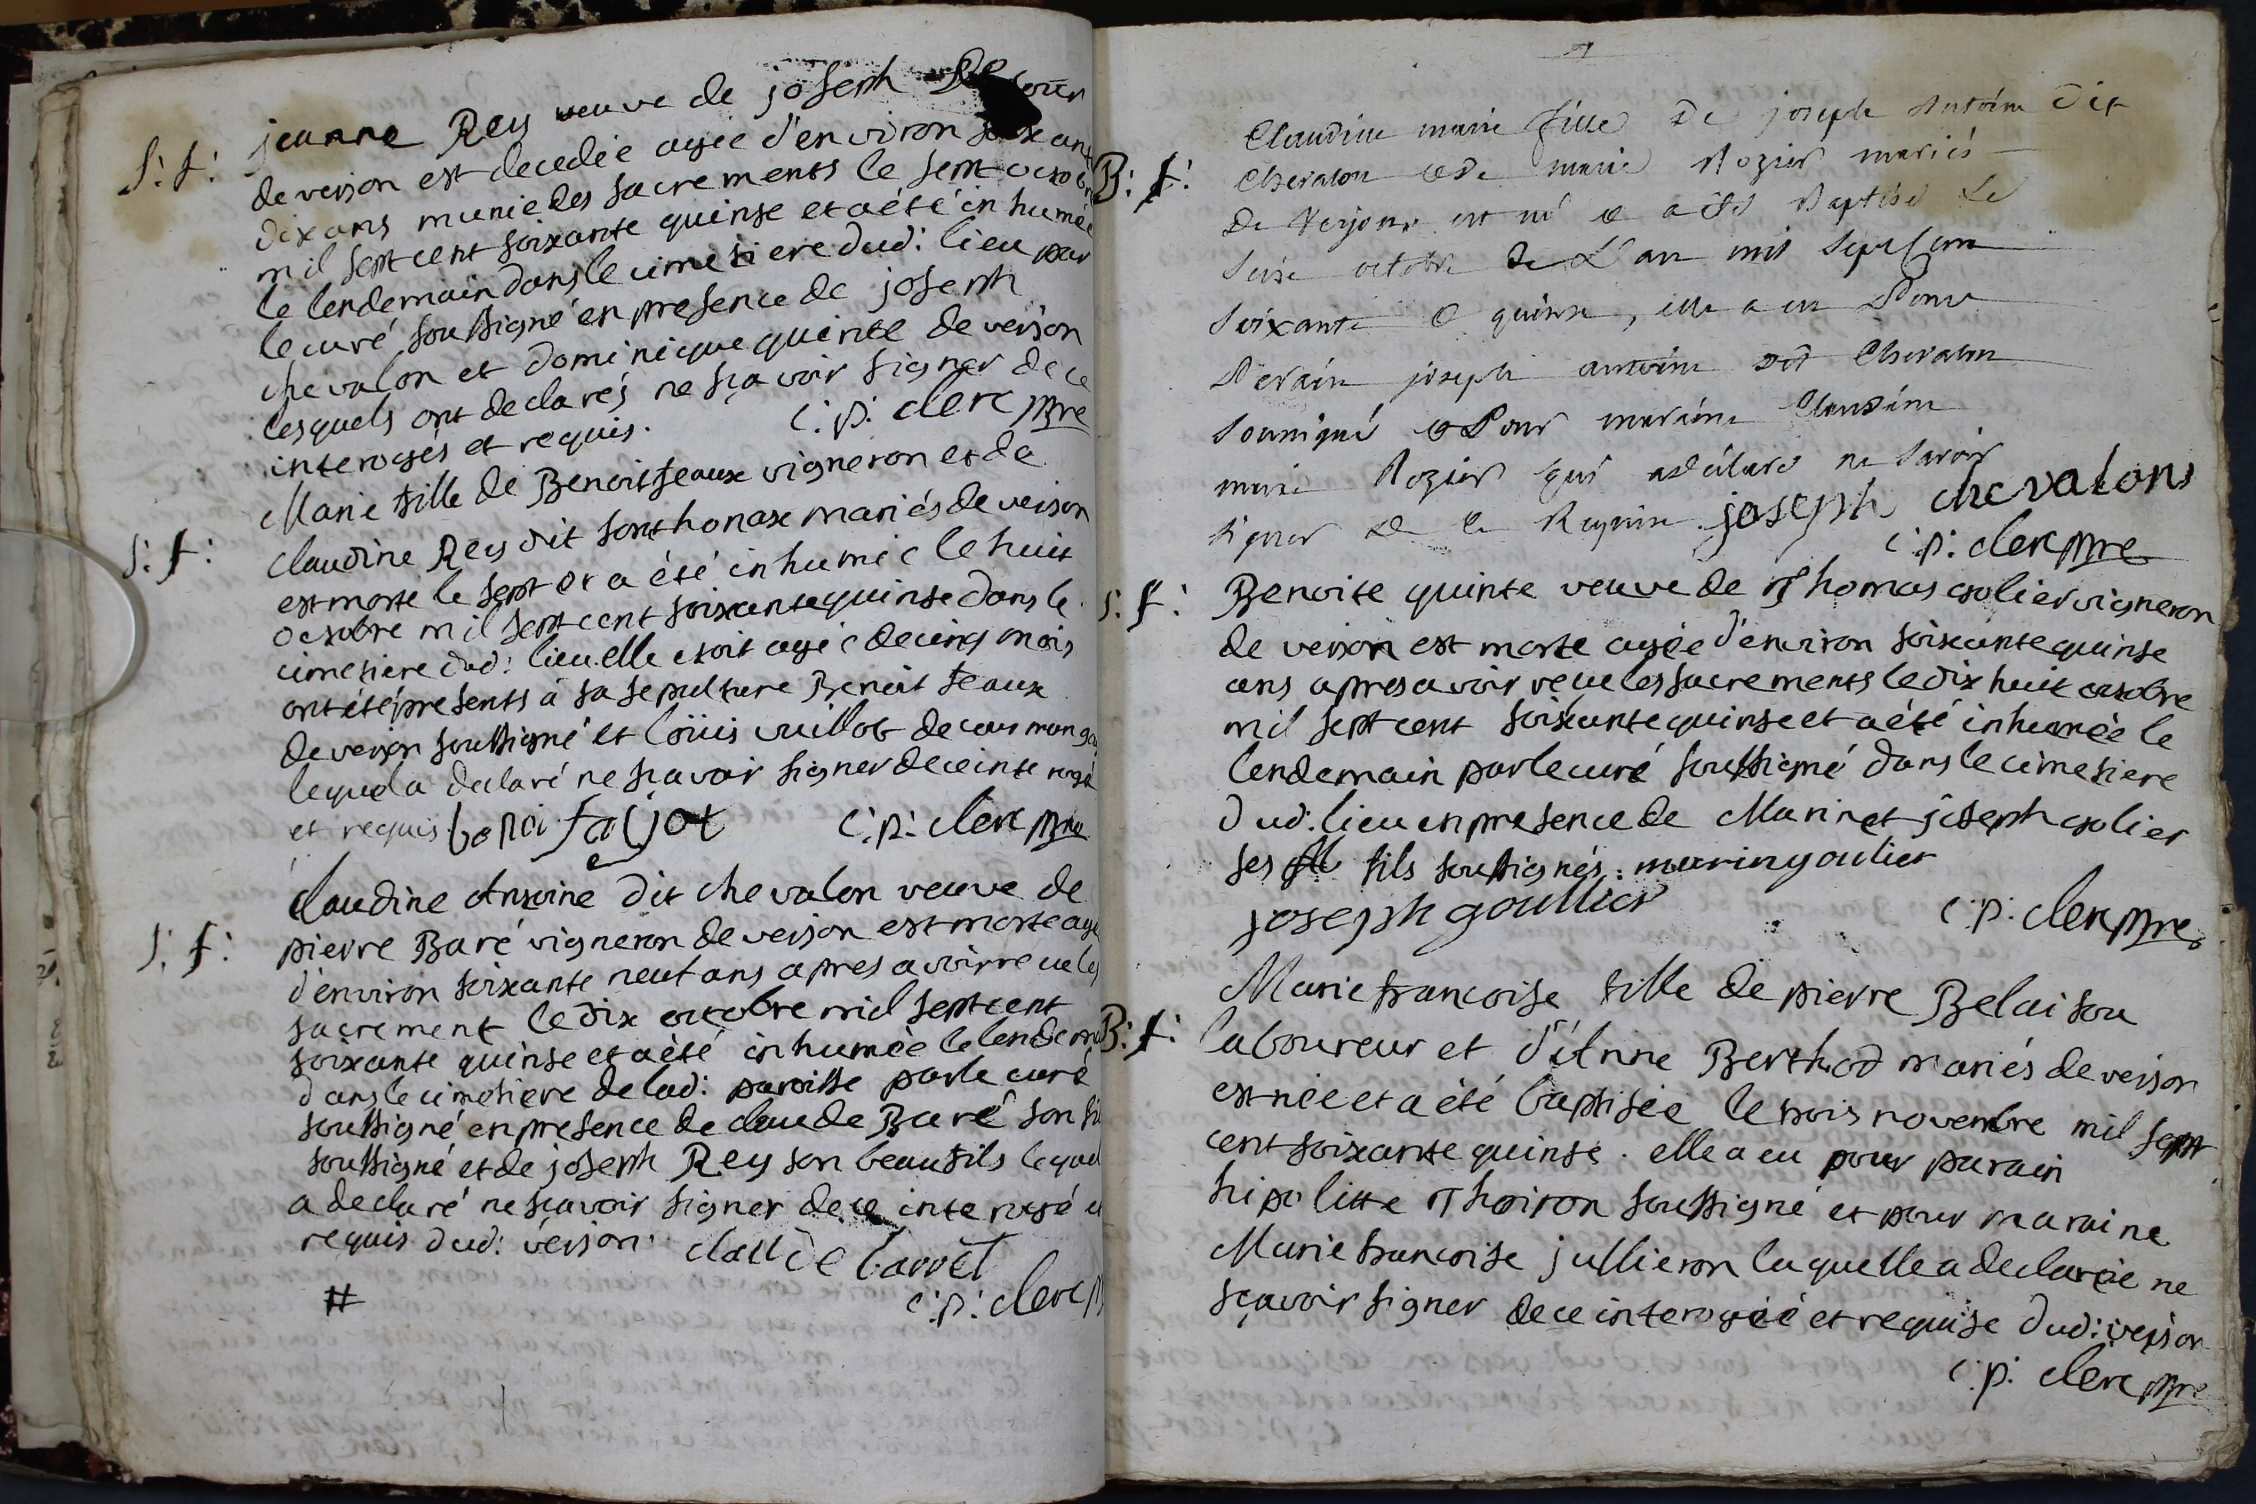 S: f:
jeanne Rey veuve de joseph
de verjon est decedée agée d'environ soixante
dix ans munie des sacrements le sept octobre
mil sept cent soixante quinse et a été inhumée
le lendemain dans le cimetiere dud: lieu par
le curé soussigné en presence de joseph
chevalon et dominique quinte de verjon
lesquels ont declarés ne sçavoir signer de ce
interogés et requis. C: p: clerc pbre
S: f:
Marie fille de Benoit feaux vigneron et de
claudine Rey dit sonthonax mariés de verjon
est morte le sept et a été inhumée le huit
octobre mil sept cent soixante quinse dans le
cimetiere dud: lieu. elle etoit agée de cinq mois
ont été presents à sa sepulture Benoit feaux
de verjon soussigné et loüis vuillot de
lequel a declaré ne sçavoir signer de ce interogé
et requis C: p: clerc pbre
S: f:
Claudine Antoine dit chevalon veuve de
pierre Baré vigneron de verjon est morte agée
d'environ soixante neuf ans apres avoir recue les
sacrement le dix octobre mil sept cent
soixante quinse et a été inhumée le lendemain
dans le cimetiere de lad: paroisse par le curé
soussigné en presence de claude Baré son fils
soussigné et de joseph Rey son beaufils lequel
a declaré ne sçavoir signer de ce interogé et
requis dud: verjon. claude barret
# C: p: clerc p
B: f:
Claudine marie fille De joseph Antoine dit
Chevalon et de marie Rozier mariés
De Verjon est né et a été Baptisé Le
seise octobre De L'an mil sept Cent
soixante et quinse, elle a eu Pour
Parain joseph antoine dit Chevalon
soussigné et Pour maraine Claudine
marie Rozier qui a déclaré ne savoir
signer de ce Requise. joseph chevalons
C: p: clerc pbre
S: f:
Benoite quinte veuve de Thomas golier vigneron
de verjon est morte agée d'environ soixante quinse
ans apres avoir reçue les sacrements le dix huit octobre
mil sept cent soixante quinse et a été inhumée le
lendemain par le curé soussigné dans le cimetiere
dud: lieu en presence de Marin et joseph golier
ses fils soussignés: marin goulier
joseph goullier C: p: clerc pbre
B: f:
Marie francoise fille de pierre Belaisou
laboureur et d'Anne Berthod mariés de verjon
est née et a été baptisée le trois novembre mil sept
cent soixante quinse. elle a eu pour parain
hipolitte Thoiron soussigné et pour maraine
Marie francoise jullieron laquelle a declarée ne
sçavoir signer de ce interogée et requise dud: verjon
C: p: clerc pbre